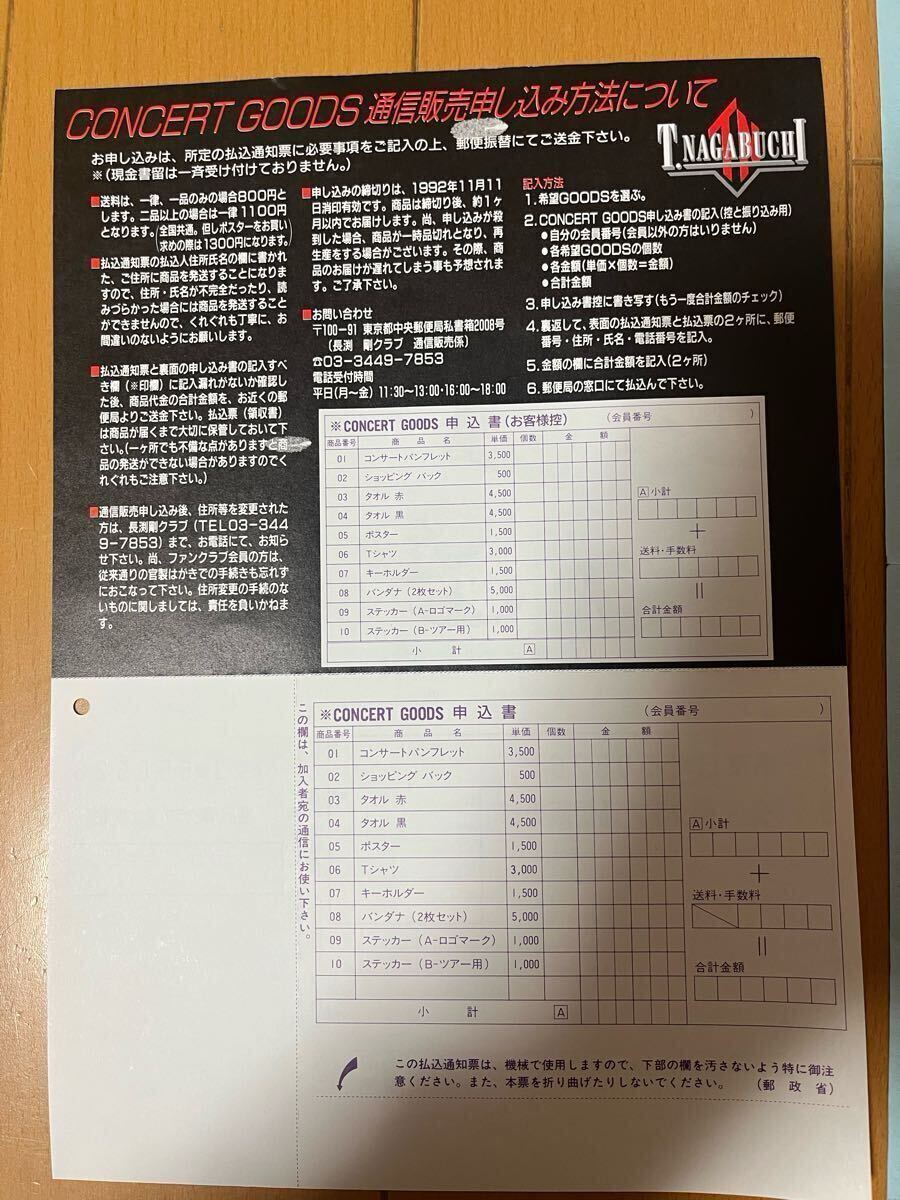 CONCERT GOODS 通信販売申し込み方法について
お申し込みは、所定の払込通知票に必要事項をご記入の上、郵便振替にてご送金下さい。
※(現金書留は一斉受け付けておりません。)
T.NAGABUCHI
■送料は、一律、一品のみの場合800円と
します。二品以上の場合は一律1100円
となります。(全国共通。但しポスターをお買い
求めの際は1300円になります。)
■払込通知票の払込人住所氏名の欄に書かれ
た、ご住所に商品を発送することになりま
すので、住所・氏名が不完全だったり、読
みづらかった場合には商品を発送すること
ができませんので、くれぐれも丁寧に、お
間違いのないようにお願いします。
■払込通知票と裏面の申し込み書の記入すべ
き欄(※印欄)に記入漏れがないか確認し
た後、商品代金の合計金額を、お近くの郵
便局よりご送金下さい。払込票(領収書)
は商品が届くまで大切に保管しておいて下
さい。(一ヶ所でも不備な点がありますと商
品の発送ができない場合がありますのでく
れぐれもご注意下さい。)
■通信販売申し込み後、住所等を変更された
方は、長渕剛クラブ(TEL03-344
9-7853)まで、お電話にて、お知ら
せ下さい。尚、ファンクラブ会員の方は、
従来通りの官製はがきでの手続きも忘れず
におこなって下さい。住所変更の手続のな
いものに関しましては、責任を負いかねま
す。
■申し込みの締切りは、1992年11月11
日消印有効です。商品は締切り後、約1ヶ
月以内でお届けします。尚、申し込みが殺
到した場合、商品が一時品切れとなり、再
生産をする場合がございます。その際、商
品のお届けが遅れてしまう事も予想されま
す。ご了承下さい。
■お問い合わせ
〒100-91 東京都中央郵便局私書箱2008号
(長渕 剛クラブ 通信販売係)
☎03-3449-7853
電話受付時間
平日(月〜金) 11:30〜13:00・16:00〜18:00
記入方法
1.希望GOODSを選ぶ。
2.CONCERT GOODS申し込み書の記入(控と振り込み用)
●自分の会員番号(会員以外の方はいりません)
●各希望GOODSの個数
●各金額(単価×個数=金額)
●合計金額
3.申し込み書控に書き写す(もう一度合計金額のチェック)
4.裏返して、表面の払込通知票と払込票の2ヶ所に、郵便
番号・住所・氏名・電話番号を記入。
5.金額の欄に合計金額を記入(2ヶ所)
6.郵便局の窓口にて払込んで下さい。
※CONCERT GOODS 申 込 書(お客様控) (会員番号 )
商品番号 商 品 名 単価 個数 金 額
01 コンサートパンフレット 3,500
02 ショッピング バック 500
03 タオル 赤 4,500
04 タオル 黒 4,500
05 ポスター 1,500
06 Tシャツ 3,000
07 キーホルダー 1,500
08 バンダナ (2枚セット) 5,000
09 ステッカー (A-ロゴマーク) 1,000
10 ステッカー (B-ツアー用) 1,000
小 計 A
A 小計
+
送料・手数料
||
合計金額
この欄は、加入者宛の通信にお使い下さい。
※CONCERT GOODS 申 込 書 (会員番号 )
商品番号 商 品 名 単価 個数 金 額
01 コンサートパンフレット 3,500
02 ショッピング バック 500
03 タオル 赤 4,500
04 タオル 黒 4,500
05 ポスター 1,500
06 Tシャツ 3,000
07 キーホルダー 1,500
08 バンダナ (2枚セット) 5,000
09 ステッカー (A-ロゴマーク) 1,000
10 ステッカー (B-ツアー用) 1,000
小 計 A
A 小計
+
送料・手数料
||
合計金額
この払込通知票は、機械で使用しますので、下部の欄を汚さないよう特に御注
意ください。また、本票を折り曲げたりしないでください。 (郵 政 省)